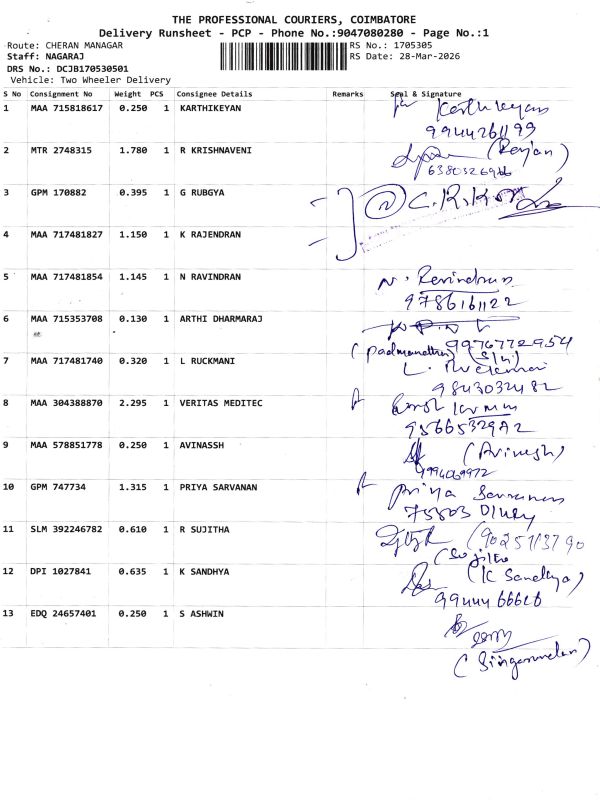 THE PROFESSIONAL COURIERS, COIMBATORE
Delivery Runsheet - PCP - Phone No.:9047080280 - Page No.:1
Route: CHERAN MANAGAR RS No.: 1705305
Staff: NAGARAJ RS Date: 28-Mar-2026
DRS No.: DCJB170530501
Vehicle: Two Wheeler Delivery
S No Consignment No Weight PCS Consignee Details Remarks Seal & Signature
1 MAA 715818617 0.250 1 KARTHIKEYAN Karthikeyan
9944261199
2 MTR 2748315 1.780 1 R KRISHNAVENI (Ranjan)
3 GPM 170882 0.395 1 G RUBGYA C.R.K
4 MAA 717481827 1.150 1 K RAJENDRAN
5 MAA 717481854 1.145 1 N RAVINDRAN N. Ravindran
9786161122
6 MAA 715353708 0.130 1 ARTHI DHARMARAJ
9976772954
7 MAA 717481740 0.320 1 L RUCKMANI L.
9843032482
8 MAA 304388870 2.295 1 VERITAS MEDITEC
9 MAA 578851778 0.250 1 AVINASSH (Avinesh)
10 GPM 747734 1.315 1 PRIYA SARVANAN Priya
11 SLM 392246782 0.610 1 R SUJITHA (9025113790
12 DPI 1027841 0.635 1 K SANDHYA (K Sandhya)
9944466626
13 EDQ 24657401 0.250 1 S ASHWIN
(Singaravelan)